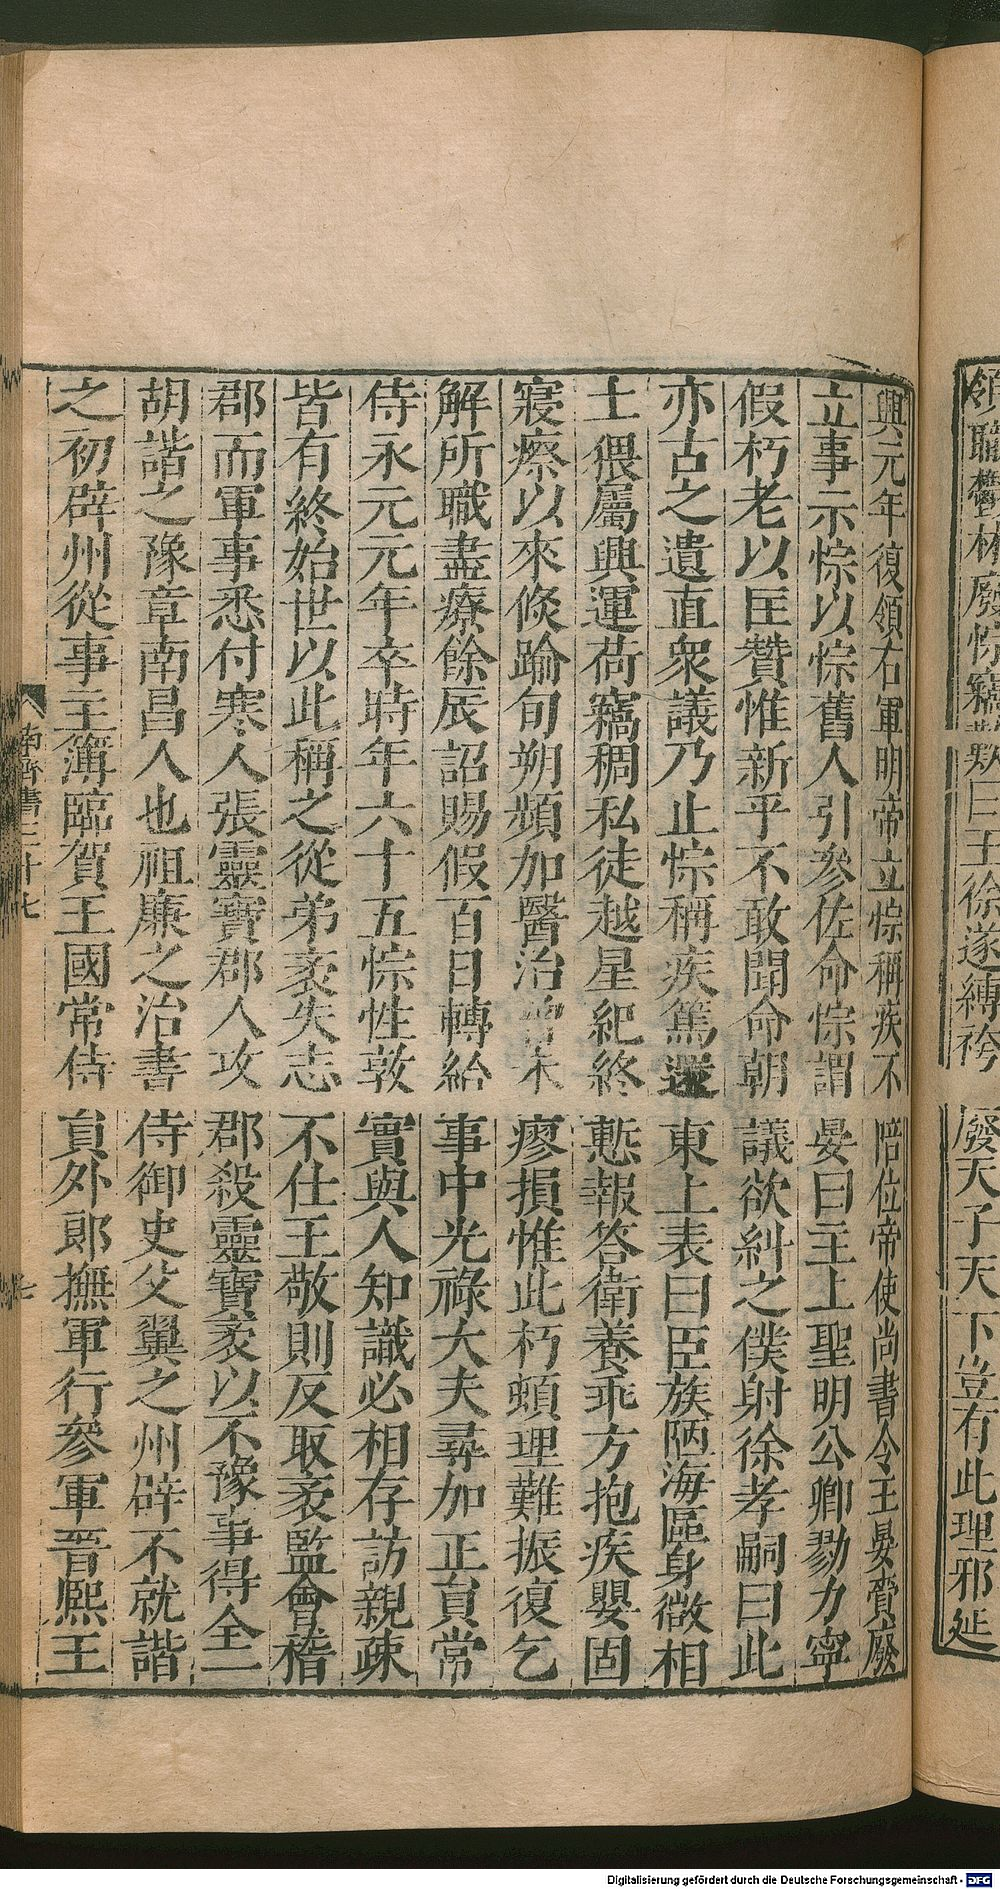 領職鬱林廢悰竊歎曰王徐遂縛袴廢天子天下豈有此理邪延
興元年復領右軍明帝立悰稱疾不陪位帝使尚書令王晏賫廢
立事示悰以悰舊人引參佐命悰謂晏曰主上聖明公卿勠力寧
假朽老以匡贊惟新乎不敢聞命朝議欲糾之僕射徐孝嗣曰此
亦古之遺直衆議乃止悰稱疾篤還東上表曰臣族陋海區身微相
士猥屬興運荷竊稠私徒越星紀終慙報答衛養乖方抱疾嬰固
寢瘵以來倐踰旬朔頻加醫治曾未瘳損惟此朽頓理難振復乞
解所職盡療餘辰詔賜假百日轉給事中光祿大夫尋加正員常
侍永元元年卒時年六十五悰性敦實與人知識必相存訪親疎
皆有終始世以此稱之從弟袤失志不仕王敬則反取袤監會稽
郡而軍事悉付寒人張靈寶郡人攻郡殺靈寶袤以不豫事得全
胡諧之豫章南昌人也祖廉之治書侍御史父翼之州辟不就諧
之初辟州從事主簿臨賀王國常侍員外郎撫軍行參軍晉熙王
南齊書三十七
七
Digitalisierung gefördert durch die Deutsche Forschungsgemeinschaft - DFG